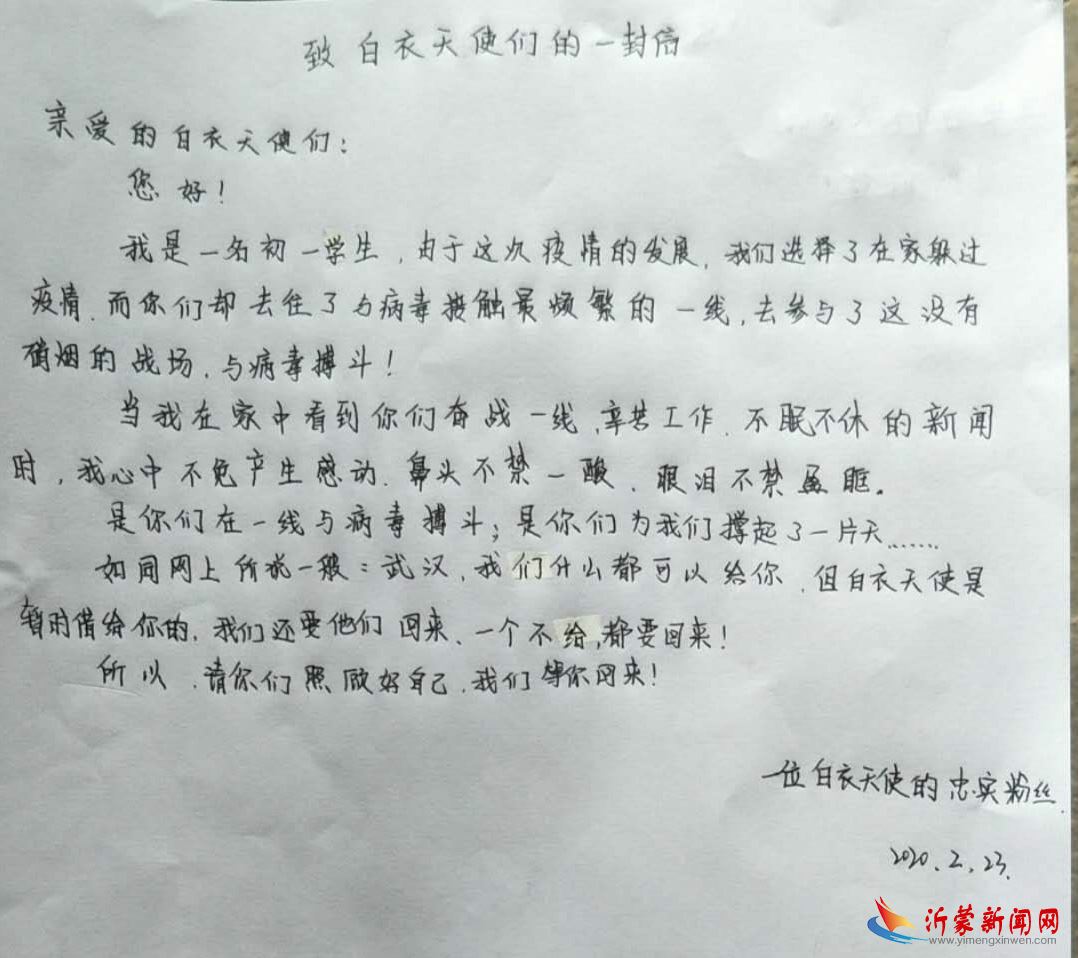 致白衣天使们的一封信
亲爱的白衣天使们：
您好！
我是一名初一学生，由于这次疫情的发展，我们选择了在家躲过
疫情，而你们却去往了与病毒接触最频繁的一线，去参与了这没有
硝烟的战场，与病毒搏斗！
当我在家中看到你们奋战一线，辛苦工作，不眠不休的新闻
时，我心中不免产生感动，鼻头不禁一酸，眼泪不禁盈眶。
是你们在一线与病毒搏斗；是你们为我们撑起了一片天……
如同网上所说一般：武汉，我们什么都可以给你，但白衣天使是
暂时借给你的，我们还要他们回来、一个不给，都要回来！
所以，请你们照顾好自己，我们等你回来！
一位白衣天使的忠实粉丝
2020.2.23.
沂蒙新闻网
www.yimengxinwen.com